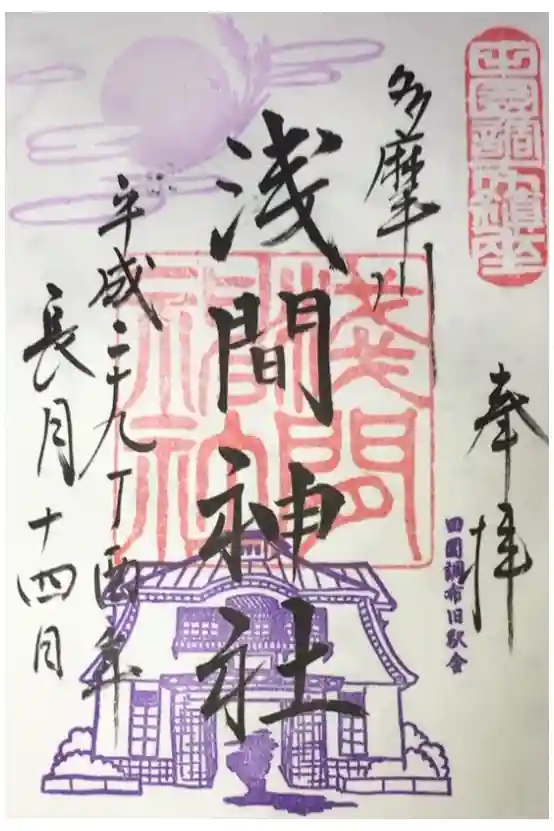 田園調布鎮座
奉拝
田園調布旧駅舎
多摩川
浅間神社
平成二十九丁酉年
長月十四日